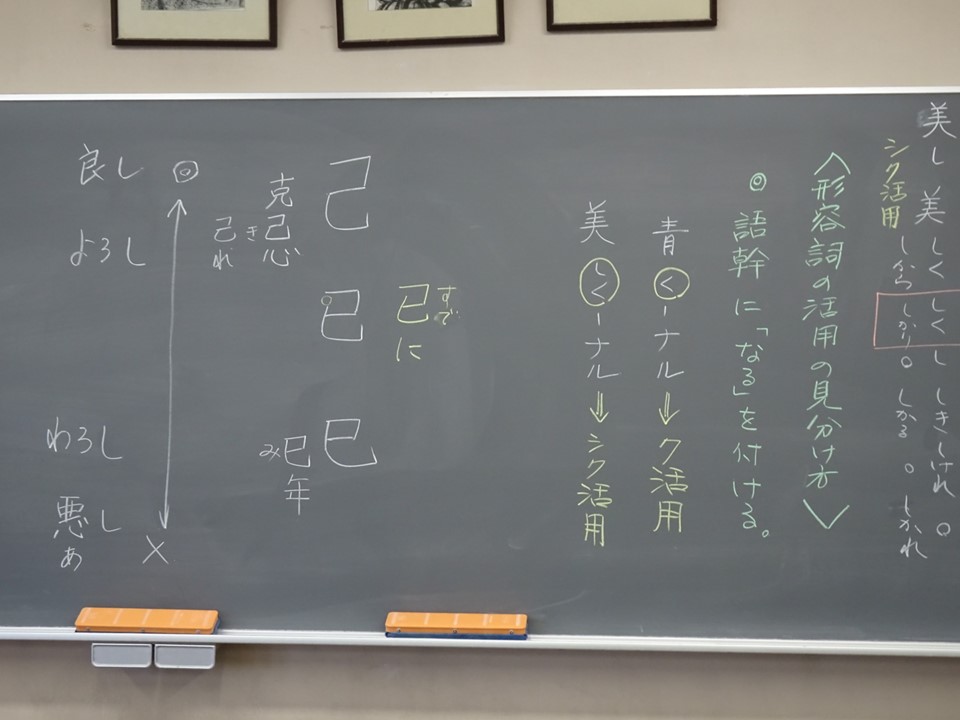 美し 美 しく しく し しき しけれ ○
シク活用 しから しかり ○ しかる ○ しかれ
〈形容詞の活用の見分け方〉
◎ 語幹に「なる」を付ける。
青くーナル⇒ク活用
美しくーナル⇒シク活用
すで
已に
己
已
巳
克己心
き
己れ
巳年
み
◎
×
良し
よろし
わろし
悪し
あ